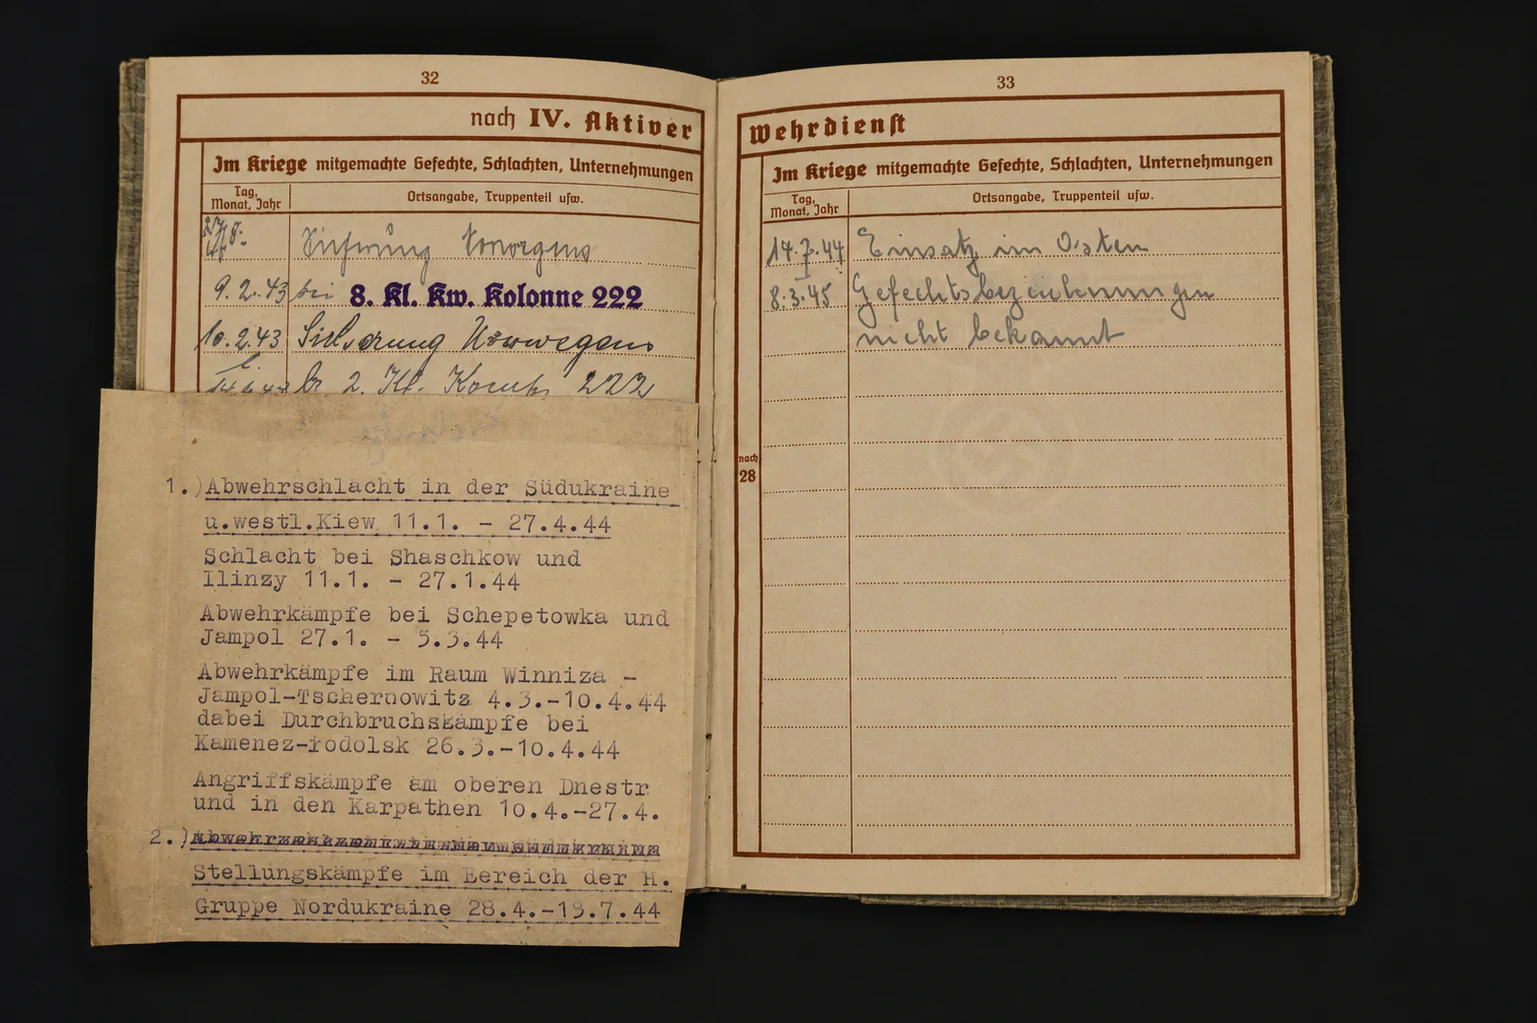 32
nach IV. Aktiver
Im Kriege mitgemachte Gefechte, Schlachten, Unternehmungen
Tag, Monat, Jahr
Ortsangabe, Truppenteil usw.
9.2.43 bei 8. Kl. Kw. Kolonne 222
10.2.43 Sicherung Norwegens
2. Kl. 222
1.) Abwehrschlacht in der Südukraine
u.westl.Kiew 11.1. - 27.4.44
Schlacht bei Shaschkow und
Ilinzy 11.1. - 27.1.44
Abwehrkämpfe bei Schepetowka und
Jampol 27.1. - 5.3.44
Abwehrkämpfe im Raum Winniza -
Jampol-Tschernowitz 4.3.-10.4.44
dabei Durchbruchskämpfe bei
Kamenez-Podolsk 26.3.-10.4.44
Angriffskämpfe am oberen Dnestr
und in den Karpathen 10.4.-27.4.
2.)
Stellungskämpfe im Bereich der H.
Gruppe Nordukraine 28.4.-13.7.44
33
Wehrdienst
Im Kriege mitgemachte Gefechte, Schlachten, Unternehmungen
Tag, Monat, Jahr
Ortsangabe, Truppenteil usw.
14.7.44 Einsatz im Osten
8.3.45 Gefechtsbezeichnungen
nicht bekannt
nach
28